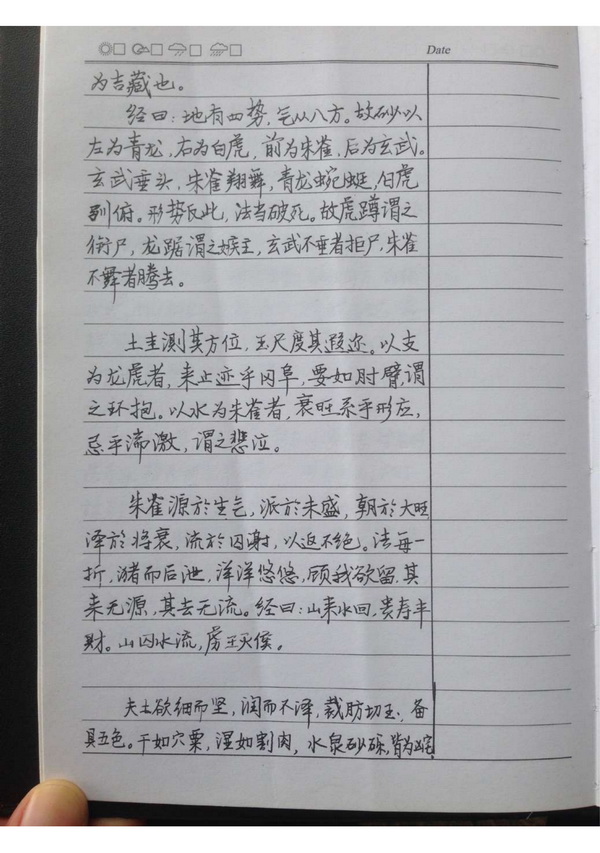 Date
为吉藏也。
经曰：地有四势，气从八方。故砂以
左为青龙，右为白虎，前为朱雀，后为玄武。
玄武垂头，朱雀翔舞，青龙蜿蜒，白虎
驯俯。形势反此，法当破死。故虎蹲谓之
衔尸，龙踞谓之嫉主，玄武不垂者拒尸，朱雀
不舞者腾去。
土圭测其方位，玉尺度其遐迩。以支
为龙虎者，来止迹乎冈阜，要如肘臂，谓
之环抱。以水为朱雀者，衰旺系乎形应，
忌乎湍激，谓之悲泣。
朱雀源於生气，派於未盛，朝於大旺
泽於将衰，流於囚谢，以返不绝。法每一
折，潴而后泄，洋洋悠悠，顾我欲留，其
来无源，其去无流。经曰：山来水回，贵寿丰
财。山囚水流，虏王灭侯。
夫土欲细而坚，润而不泽，裁肪切玉，备
具五色。干如穴粟，湿如割肉，水泉砂砾，皆为凶宅